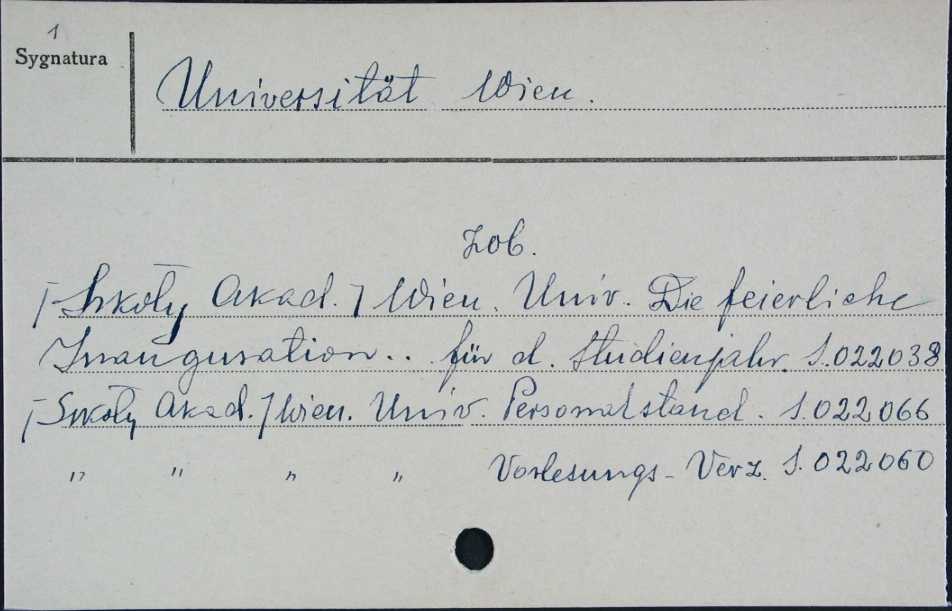 1
Sygnatura
Universität Wien.
Zob.
[Szkoły Akad.] Wien. Univ. Die feierliche
Inauguration.. für d. Studienjahr. S.022038
[Szkoły Akad.] Wien. Univ. Personalstand. S.022066
" " " " Vorlesungs-Verz. S.022060